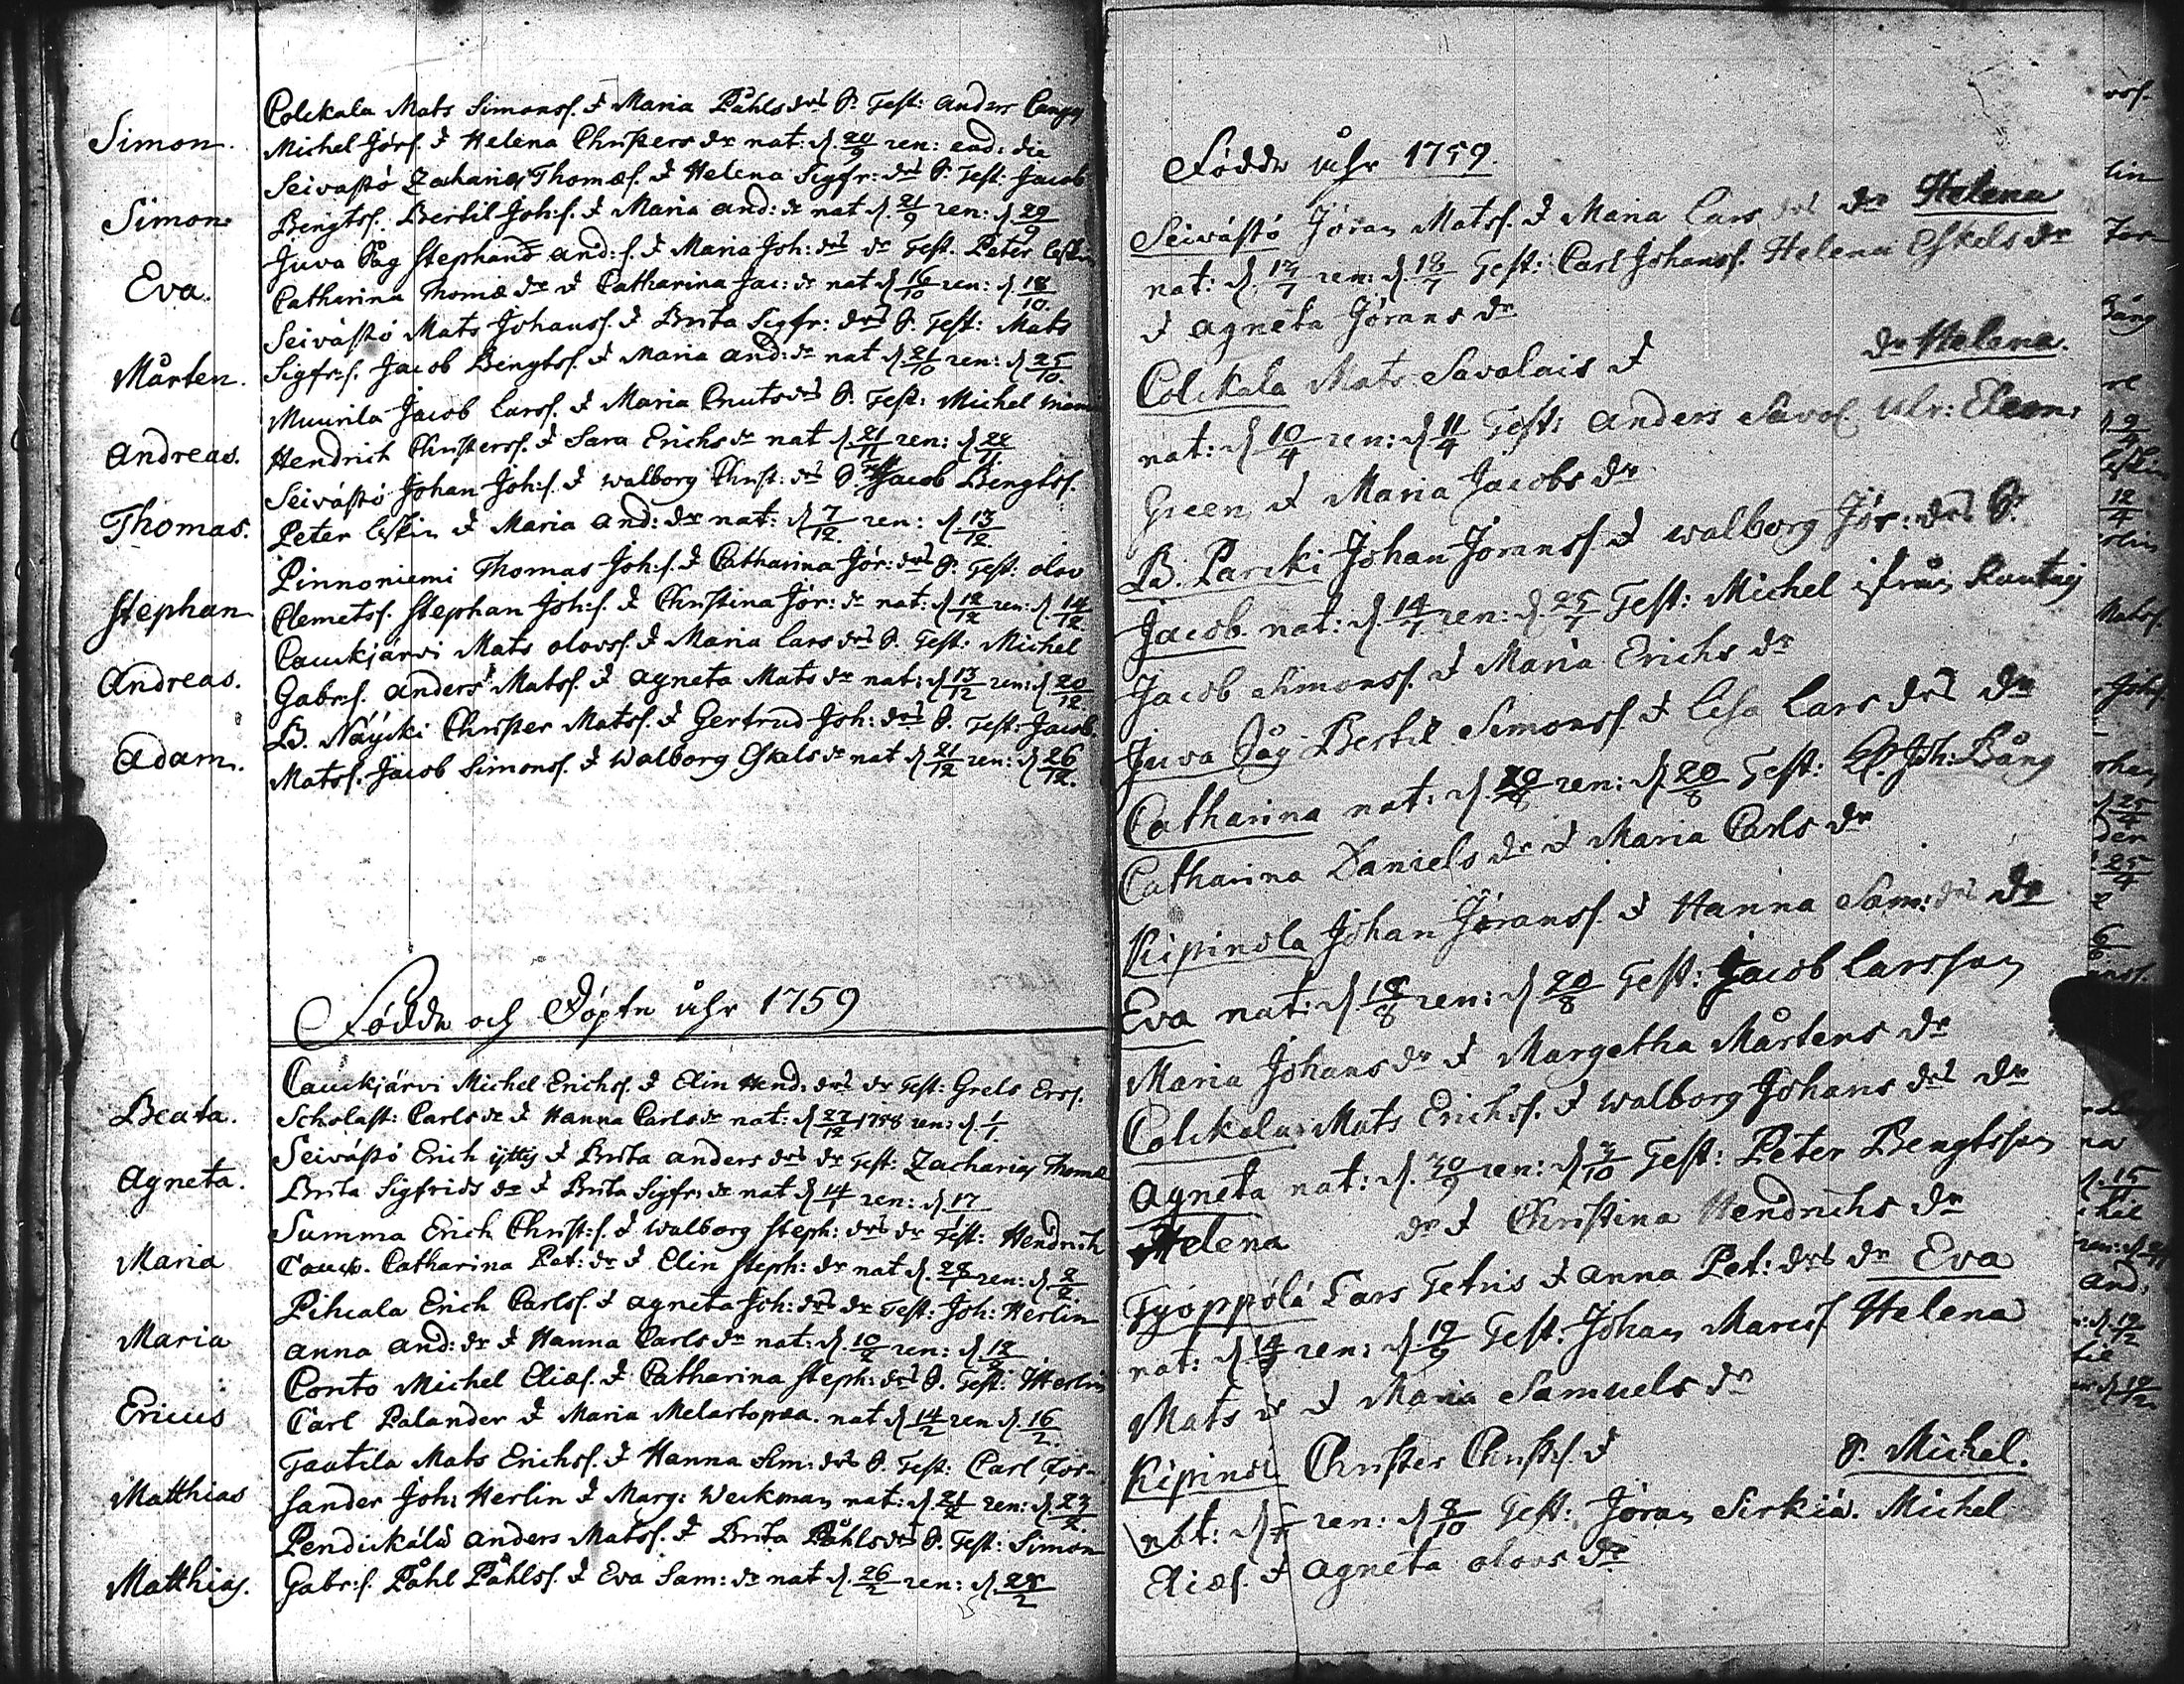 Colckala Mats Simonss. & Maria Påhls drs S. Test: Anders Cangas
Simon. Michel Jörs. & Helena Christers dr nat: d. 20/9 ren: eod: die
Seivästö Zacharias Thomæs. & Helena Sigfr: drs S. Test: Jacob
Simon Bengtss. Bertil Joh:s. & Maria And: dr nat d. 21/9 ren: d. 29/9
Juva Påg Stephan And:s. & Maria Joh: drs dr Test. Peter Eskin
Eva. Catharina Thomæ dr & Catharina Jac: dr nat d. 16/10 ren: d. 18/10.
Seivästö Mats Johanss. & Brita Sigfr: drs S. Test: Mats
Mårten. Sigfr:s. Jacob Bengtss. & Maria And: dr nat d. 21/10 ren: d. 25/10.
Muurila Jacob Larss. & Maria Cnuts drs S. Test: Michel
Andreas. Hendrich Christerss. & Sara Erichs dr nat d. 21/11 ren: d. 22/11.
Seivästö Johan Joh:s. & Walborg Christ: drs S. Test Jacob Bengtss.
Thomas. Peter Eskin & Maria And: dr nat: d. 7/12. ren: d. 13/12.
Pinnoniemi Thomas Joh:s. & Catharina Jör: drs S. Test: Olov
Stephan Clemetss. Stephan Joh:s. & Christina Jör: dr nat: d. 12/12 ren: d. 14/12.
Cauckjärvi Mats Olovss. & Maria Lars drs S. Test: Michel
Andreas. Gabr:s. Anders Matss. & Agneta Mats dr nat: d. 13/12 ren: d. 20/12.
B. Näycki Christer Matss. & Gertrud Joh: drs S. Test: Jacob
Adam. Matss. Jacob Simonss. & Walborg Eskels dr nat d. 21/12 ren: d. 26/12.
Födde och Döpte åhr 1759
Cauckjärvi Michel Erichs. & Elin Hend: drs dr Test: Grels Ers.
Beata. Scholast: Carls dr & Hanna Carls dr nat: d. 27/12 1758 ren: d. 1/1.
Seivästö Erich ijttij & Brita Anders drs dr Test: Zacharias Thomæ
Agneta. Brita Sigfrids dr & Brita Sigfr: dr nat d. 14/1 ren: d. 17/1
Summa Erich Christ:s. & Walborg Steph: drs dr Test: Hendrich
Maria Cauck. Catharina Pet: dr & Elin Steph: dr nat d. 28/1 ren: d. 2/2.
Pihcala Erich Carlss. & Agneta Joh: drs dr Test: Joh: Herlin
Maria Anna And: dr & Hanna Carls dr nat: d. 10/2 ren: d. 12/2
Conto Michel Eliæs. & Catharina Steph: drs S. Test: J Herlin
Ericus Carl Palander & Maria Melartopæa. nat d. 14/2 ren d. 16/2.
Tautila Mats Erichs. & Hanna Sim: drs S. Test: Carl For-
Matthias sander Joh: Herlin & Marg: Weckman nat: d. 21/2 ren: d. 23/2.
Pendickälä Anders Matss. & Brita Påhls drs S. Test: Simon
Matthias. Gabr:s. Påhl Påhlss. & Eva Sam: dr nat d. 26/2 ren: d. 28/2
Födde åhr 1759.
Seivästö Jöran Matss. & Maria Lars drs dr Helena
nat: d. 17/7 ren: d. 18/7 Test: Carl Johanss. Helena Eskels dr
& Agneta Jörans dr
Colckala Mats Savolais & dr Helena.
nat: d. 10/4 ren: d. 11/4 Test: Anders Savol. Ulr: Eleon:
Green & Maria Jacobs dr
B. Parcki Johan Joranss. & Walborg Jör: drs S.
Jacob. nat: d. 14/7 ren: d. 25/7 Test: Michel ifrån
Jacob Simonss. & Maria Erichs dr
Juva Påg Bertil Simonss. & Lisa Lars drs dr
Catharina nat: d. 20/8 ren: d. 20/8 Test: Joh: Bång
Catharina Daniels dr & Maria Carls dr
Kipinola Johan Jöranss. & Hanna Sam: drs dr
Eva nat: d. 18/8 ren: d. 20/8 Test: Jacob Larsson
Maria Johans dr & Margetha Mårtens dr
Colckala Mats Erichs. & Walborg Johans drs dr
Agneta nat: d. 30/9 ren: d. 3/10 Test: Peter Bengtsson
Helena dr & Christina Hendrichs dr
Tyoppölä Lars Tetris & Anna Pet: drs dr Eva
nat: d. 14/9 ren: d. 19/9 Test. Johan Marcis Helena
Mats dr & Maria Samuels dr
Kipinol Christer Christs. & S. Michel.
nat: d. ren: d. 8/10 Test: Jöran Sirkiä. Michel
Eliæs. & Agneta Olovs dr